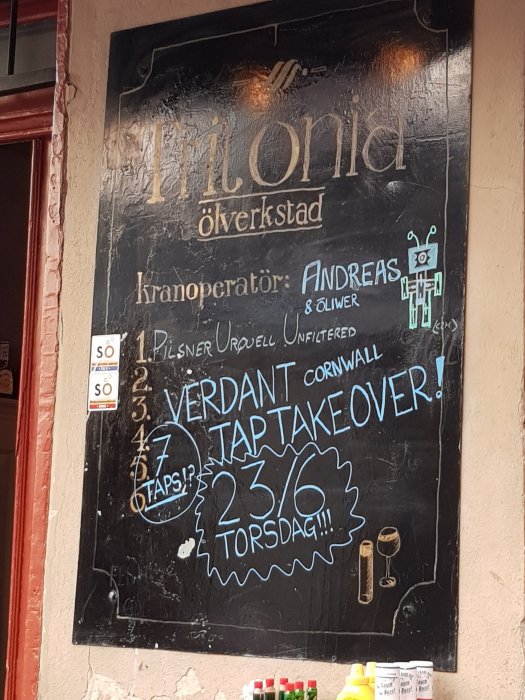 Tritonia
ölverkstad
kranoperatör: ANDREAS
& ÖLIWER
1. PILSNER URQUELL UNFILTERED
2.
3. VERDANT CORNWALL
4. TAP TAKEOVER!
5. 7
6 TAPS!?
23/6
TORSDAG!!!
SÖ
SÖ